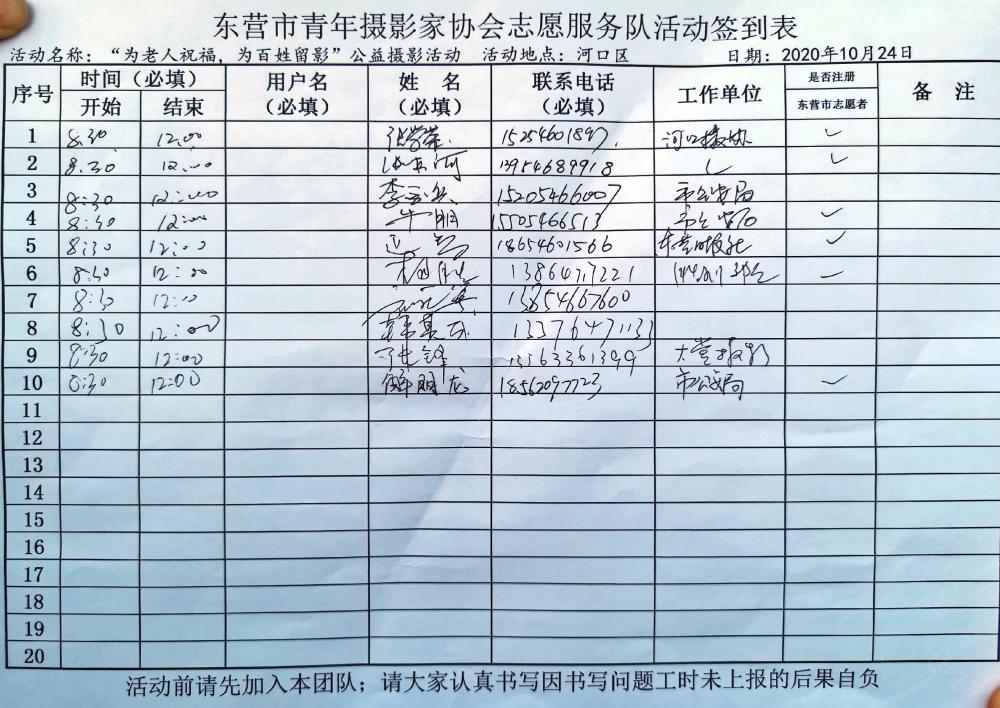 东营市青年摄影家协会志愿服务队活动签到表
活动名称：“为老人祝福，为百姓留影”公益摄影活动 活动地点：河口区 日期：2020年10月24日
序号 时间（必填） 用户名（必填） 姓 名（必填） 联系电话（必填） 工作单位 是否注册东营市志愿者 备 注
开始 结束
1 8:30 12:00 15254601897 河口摄协 ✓
2 8:30 12:00 13954689918 ✓
3 8:30 12:00 15205466007 市公安局
4 8:30 12:00 牛明 15505466513 市公安局 ✓
5 8:30 12:00 18654601566 ✓
6 8:30 12:00 13864717221 ✓
7 8:30 12:00 13854667600
8 8:30 12:00 13376471133
9 8:30 12:00 张锋 13563361399
10 8:30 12:00 解明龙 18562097723 市公安局 ✓
11
12
13
14
15
16
17
18
19
20
活动前请先加入本团队；请大家认真书写因书写问题工时未上报的后果自负